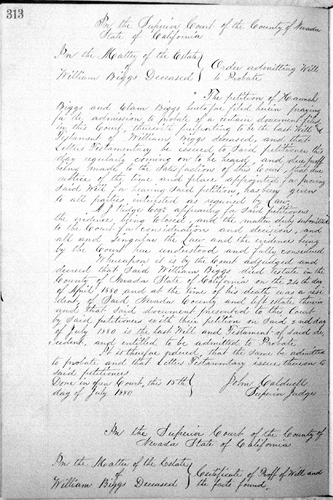 313
In the Superior Court of the County of Nevada
State of California
In the Matter of the Estate
of
William Biggs Deceased
Order admitting Will
to Probate
The petition of Hannah
Biggs and Elam Biggs heretofore filed herein praying
for the admission to probate of a certain document filed
in this Court, therewith purporting to be the last Will &
Testament of William Biggs deceased, and that
Letters Testamentary be issued to said petitioners this
day regularly coming on to be heard, and due proof
being made to the satisfaction of this Court, that due
notice of the time and place appointed for proving
said Will & for hearing said petition, has been given
to all parties interested as required by Law.
appearing for said petitioners
the evidence being closed and the matter duly submitted
to the Court for consideration and decision, and
all and singular the Law and the evidence being
by the Court here understood and fully considered
Whereupon it is by the Court adjudged and
decreed that said William Biggs died testate in the
County of Nevada State of California on the 24th day
of April 1880 and at the time of his death was a resi
dent of said Nevada County and left estate therein
and that said document presented to this Court
by said petitioners with their petition on said 2nd day
of July 1880 is the last Will and Testament of said de
cedent, and entitled to be admitted to Probate.
It is therefore ordered that the same be admitted
to probate and that Letters Testamentary issue thereon to
said petitioners
Done in open Court this 15th
day of July 1880
John Caldwell
Superior Judge
In the Superior Court of the County of
Nevada State of California
In the Matter of the Estate
of
William Biggs Deceased
Certificate of Proof of Will and
the facts found